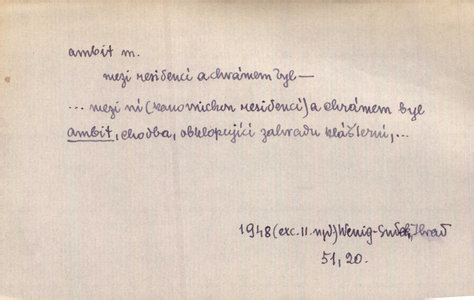 ambit m.
mezi residencí a chrámem byl —
... mezi ní (kanovnickou residencí) a chrámem byl
ambit, chodba, obklopující zahradu klášterní, ...
1948 (exc. II. vyd) Wenig- Hrad
51, 20.